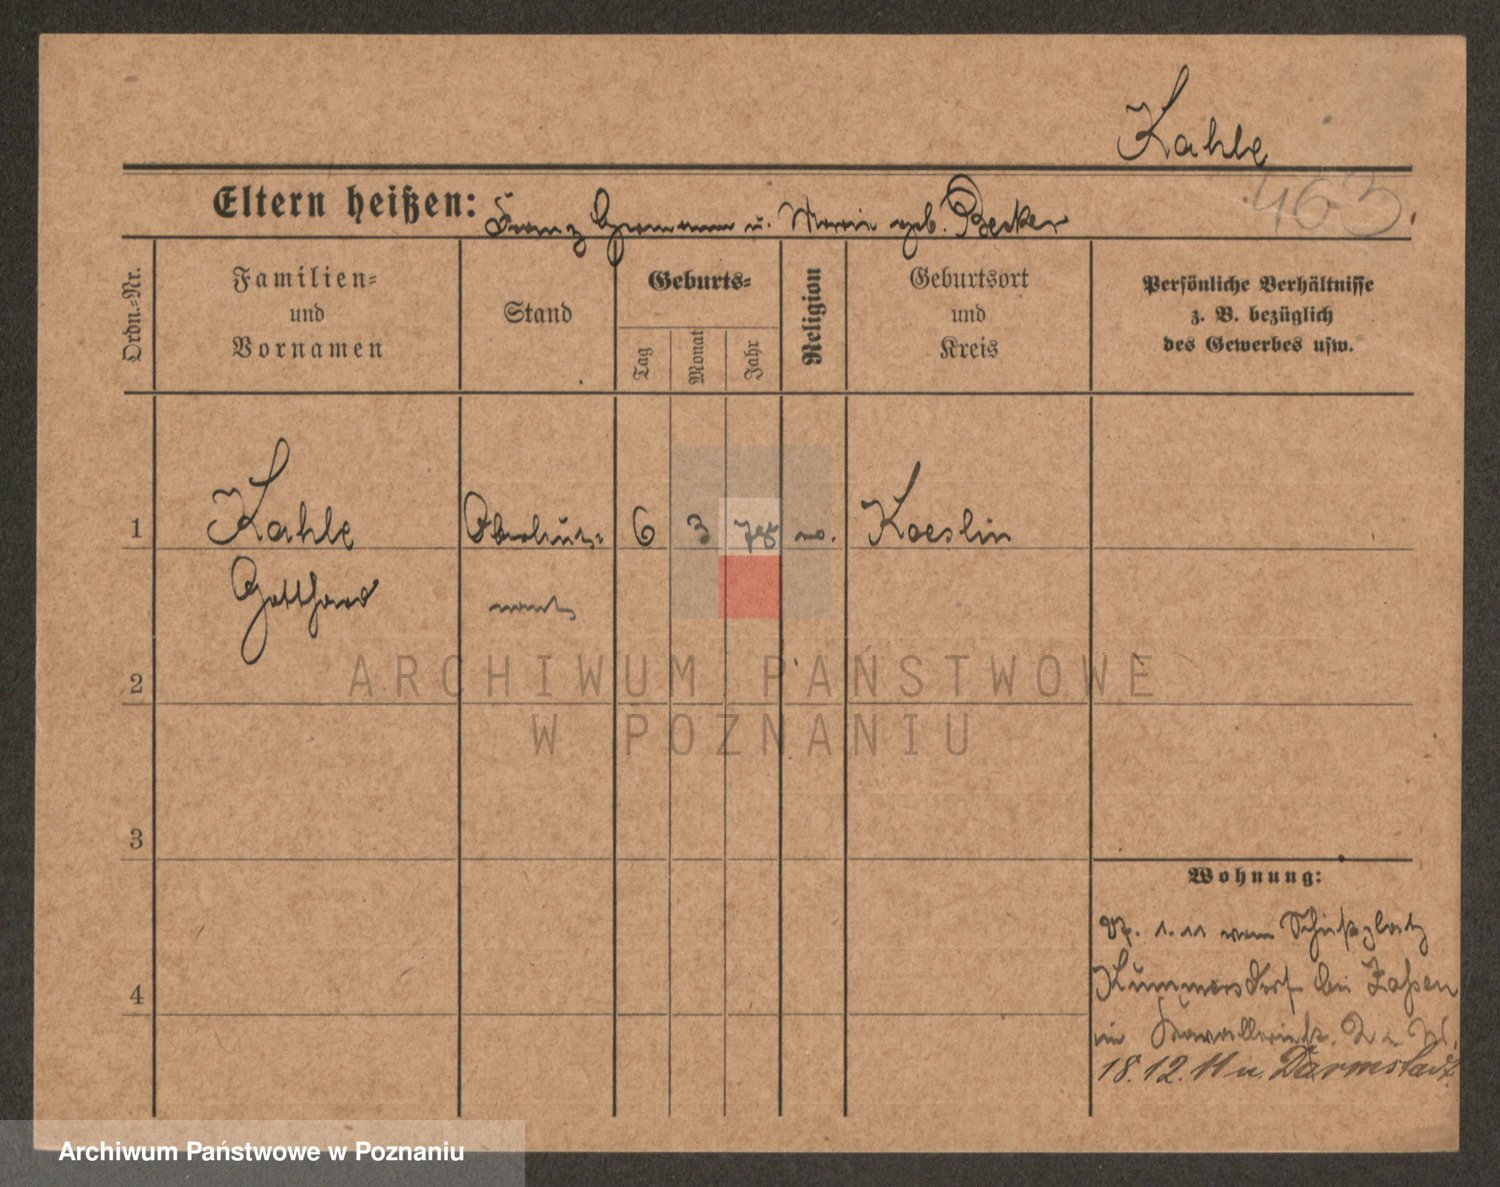 Kahle
463.
Eltern heißen: Franz Hermann u. Marie geb. Becker
Ordn.-Nr.
Familien-
und
Vornamen
Stand
Geburts-
Tag
Monat
Jahr
Religion
Geburtsort
und
Kreis
Persönliche Verhältnisse
z. B. bezüglich
des Gewerbes usw.
1 Kahle Oberleut- 6 3 78 ev. Koeslin
Gotthard nant
2
ARCHIWUM PAŃSTWOWE
W POZNANIU
3
4
Wohnung:
1.11 vom Schießplatz
Kummersdorf bei Zossen
im
18.12.11 n. Darmstadt
Archiwum Państwowe w Poznaniu